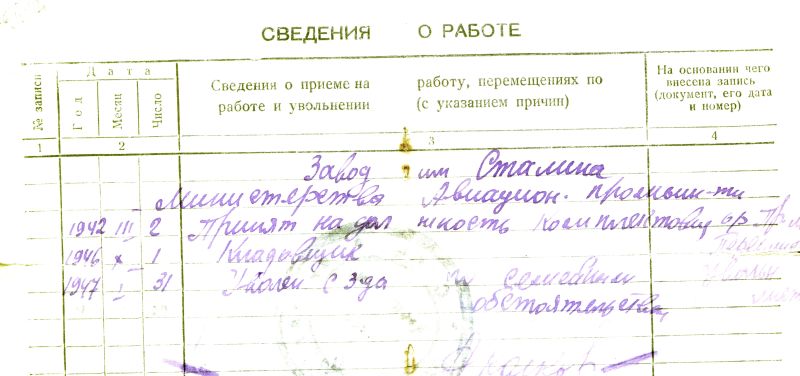 СВЕДЕНИЯ О РАБОТЕ
№ записи
Дата
Год
Месяц
Число
Сведения о приеме на работу, перемещениях по
работе и увольнении (с указанием причин)
На основании чего
внесена запись
(документ, его дата
и номер)
1 2 3 4
Завод им Сталина
Министерства Авиацион. промышл-ти
1942 III 2 Принят на должность комплектовщ
1946 X 1 Кладовщик
1947 I 31 Уволен с з-да по семейным
обстоятельствам